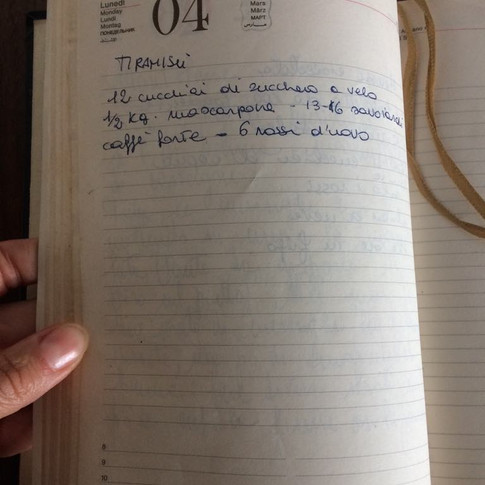 Lunedì
Monday
Lundi
Montag
ПОНЕДЕЛЬНИК
04
Mars
März
МАРТ
TIRAMISÙ
12 cucchiai di zucchero a velo
1/2 Kg. mascarpone - 13-16 savoiardi
caffè forte - 6 rossi d'uovo
8
9
10